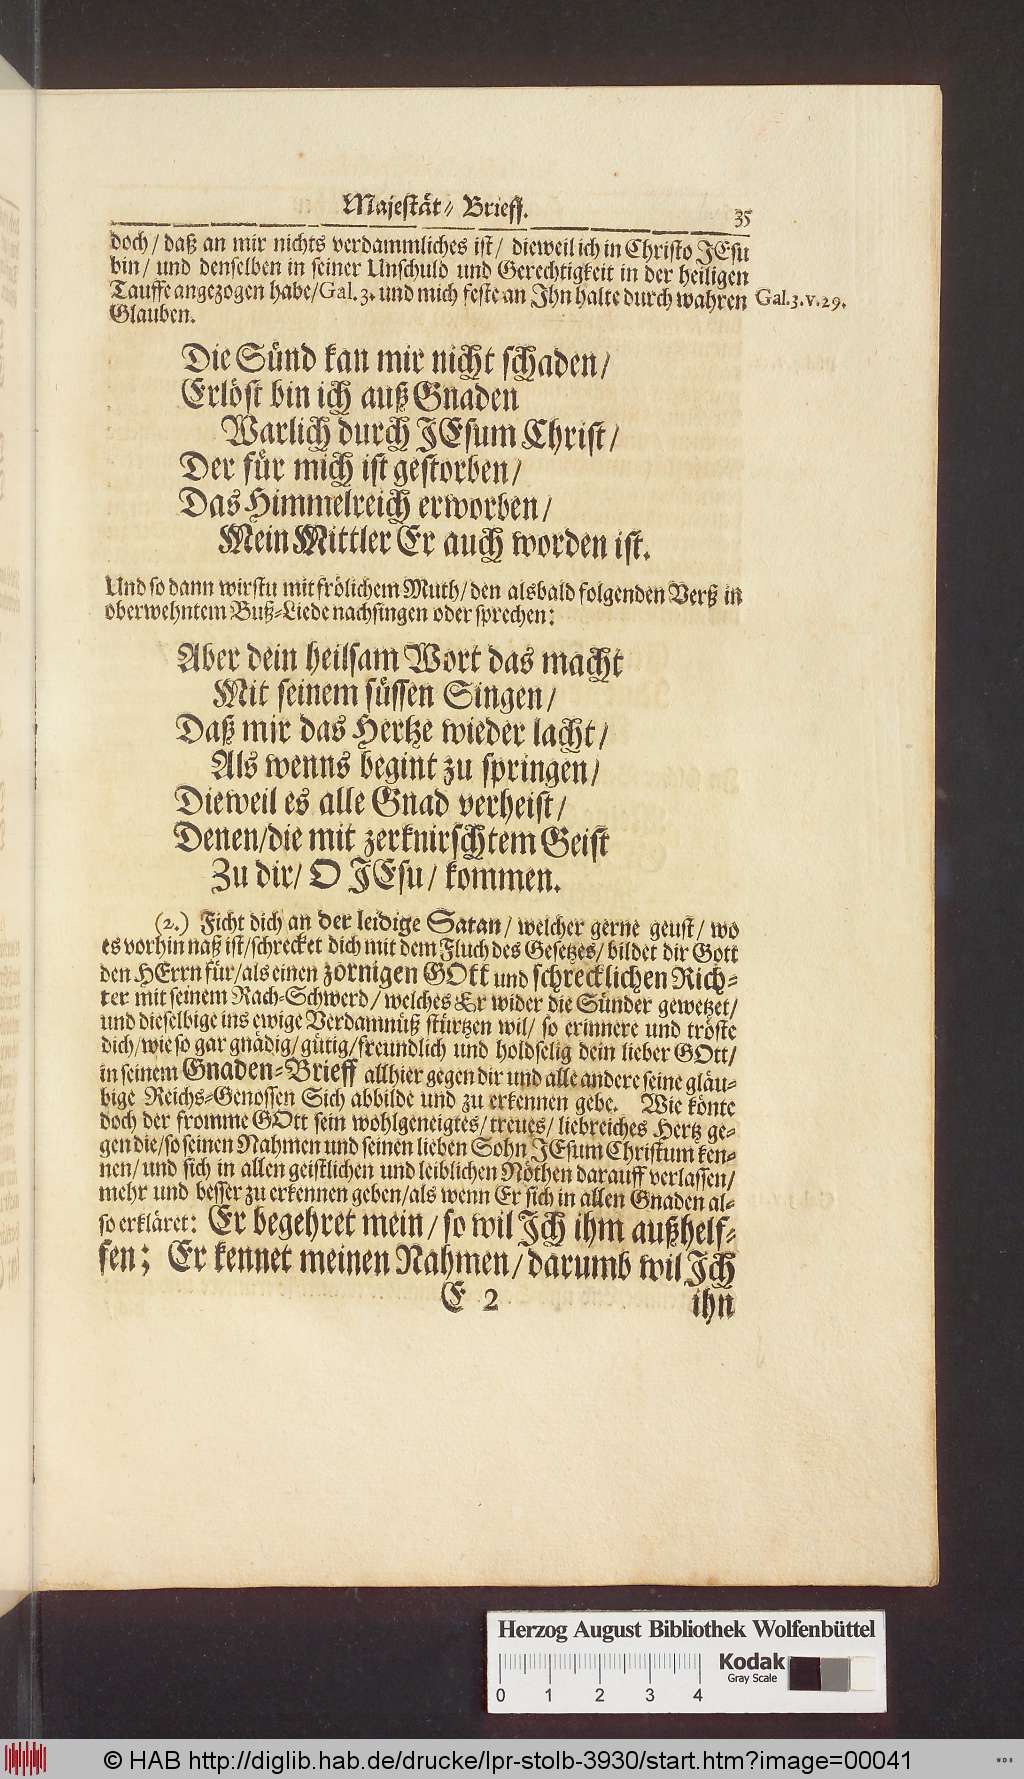 Majestät-Brieff.
35
doch/ daß an mir nichts verdammliches ist/ dieweil ich in Christo JEsu
bin/ und denselben in seiner Unschuld und Gerechtigkeit in der heiligen
Tauffe angezogen habe/ Gal. 3. und mich feste an Ihn halte durch wahren
Gal. 3. v. 29.
Glauben.
Die Sünd kan mir nicht schaden/
Erlöst bin ich auß Gnaden
Warlich durch JEsum Christ/
Der für mich ist gestorben/
Das Himmelreich erworben/
Mein Mittler Er auch worden ist.
Und so dann wirstu mit frölichem Muth/ den alsbald folgenden Verß in
oberwehntem Buß-Liede nachsingen oder sprechen:
Aber dein heilsam Wort das macht
Mit seinem süssen Singen/
Daß mir das Hertze wieder lacht/
Als wenns begint zu springen/
Dieweil es alle Gnad verheist/
Denen/ die mit zerknirschtem Geist
Zu dir/ O JEsu/ kommen.
(2.) Ficht dich an der leidige Satan/ welcher gerne geust/ wo
es vorhin naß ist/ schrecket dich mit dem Fluch des Gesetzes/ bildet dir Gott
den HErrn für/ als einen zornigen GOtt und schrecklichen Rich-
ter mit seinem Rach-Schwerd/ welches Er wider die Sünder gewetzet/
und dieselbige ins ewige Verdamnüß stürtzen wil/ so erinnere und tröste
dich/ wie so gar gnädig/ gütig/ freundlich und holdselig dein lieber GOtt/
in seinem Gnaden-Brieff allhier gegen dir und alle andere seine gläu-
bige Reichs-Genossen Sich abbilde und zu erkennen gebe. Wie könte
doch der fromme GOtt sein wohlgeneigtes/ treues/ liebreiches Hertz ge-
gen die/ so seinen Nahmen und seinen lieben Sohn JEsum Christum ken-
nen/ und sich in allen geistlichen und leiblichen Nöthen darauff verlassen/
mehr und besser zu erkennen geben/ als wenn Er sich in allen Gnaden al-
so erkläret: Er begehret mein/ so wil Jch ihm außhelf-
fen; Er kennet meinen Nahmen/ darumb wil Jch
E 2
ihn
Herzog August Bibliothek Wolfenbüttel
Kodak
Gray Scale
0 1 2 3 4
© HAB http://diglib.hab.de/drucke/lpr-stolb-3930/start.htm?image=00041